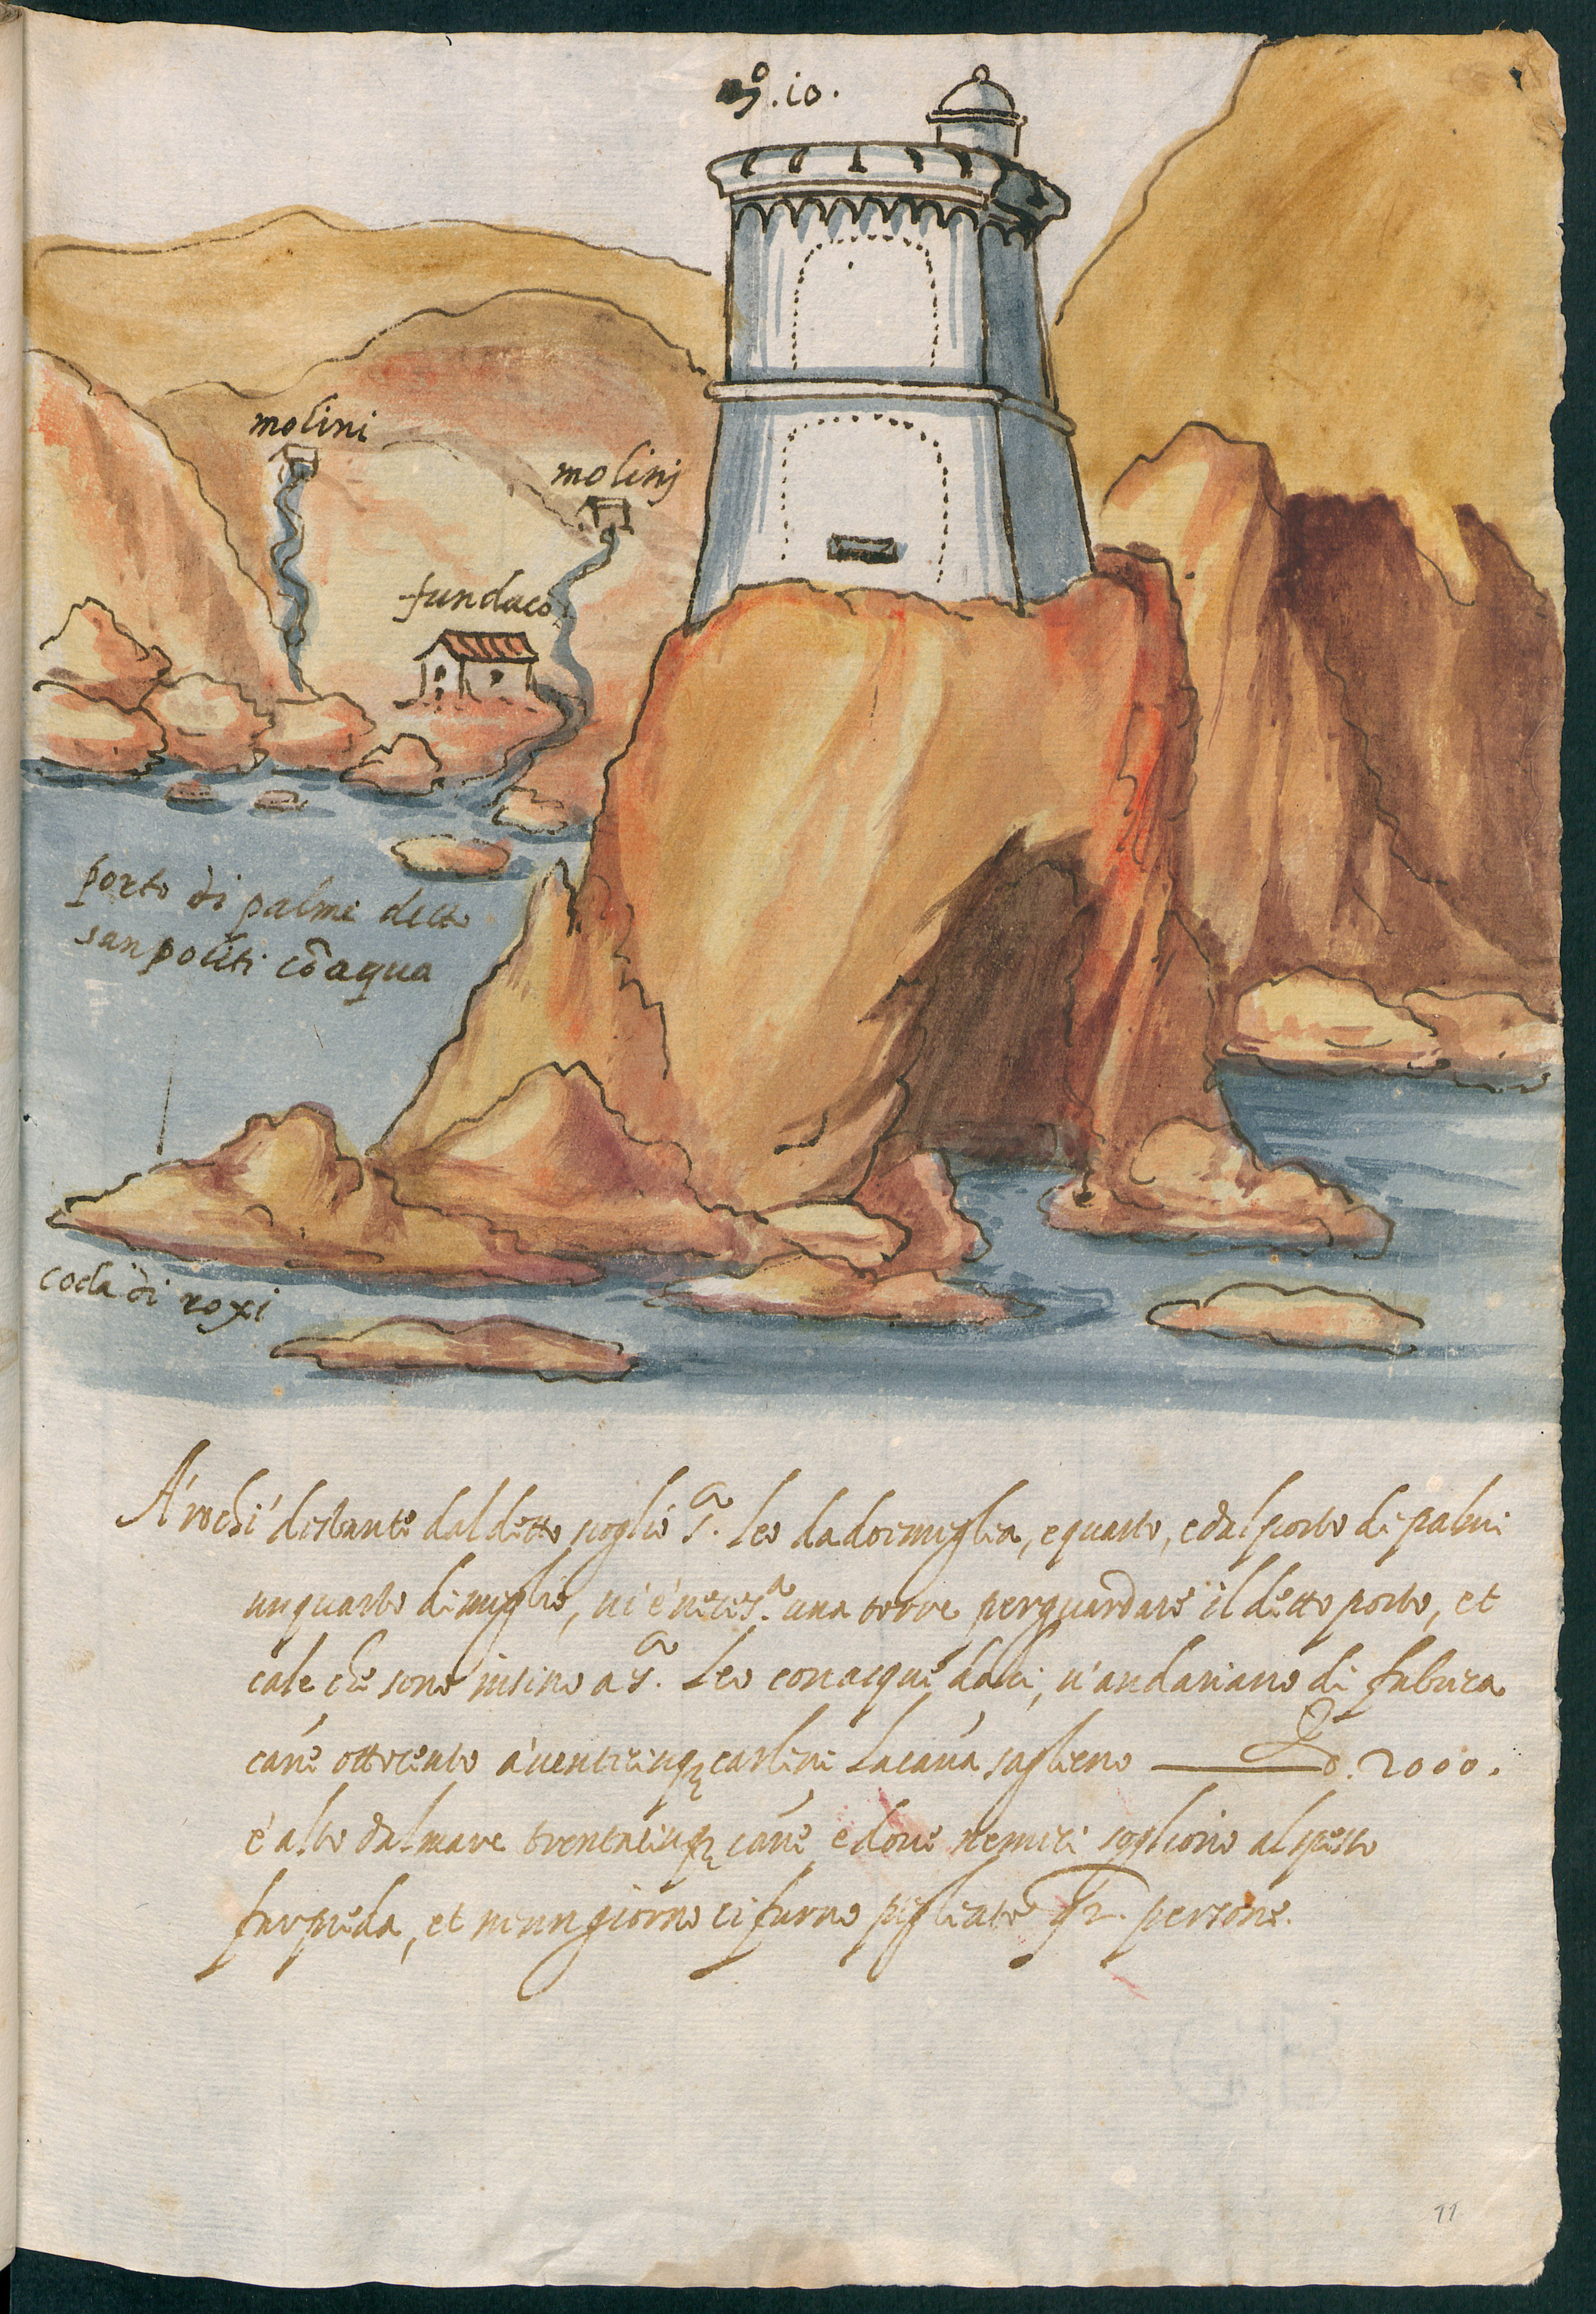 nº. 10.
molini
molinj
fundaco
porto di palme detto
san politi cõ aqua
coda di roxi
A' rochi distante dal detto scoglio Sᵃ. Leo da doi miglia, e quarto, e dal porto di palmi
un quarto di miglio, ui è necesᵃ. una torre per guardare il detto porto, et
cale che sono insino a Sᵃ. Leo con acque dolci, u'andariano di fabrica
cañe ottocento à uenticinq; carlini la cañа saglieno D. 2000.
è alto dal mare trentacinq; cañe e doue nemici sogliono al spesso
far preda, et in un giorno ci furno pigliate 92. persone.
11